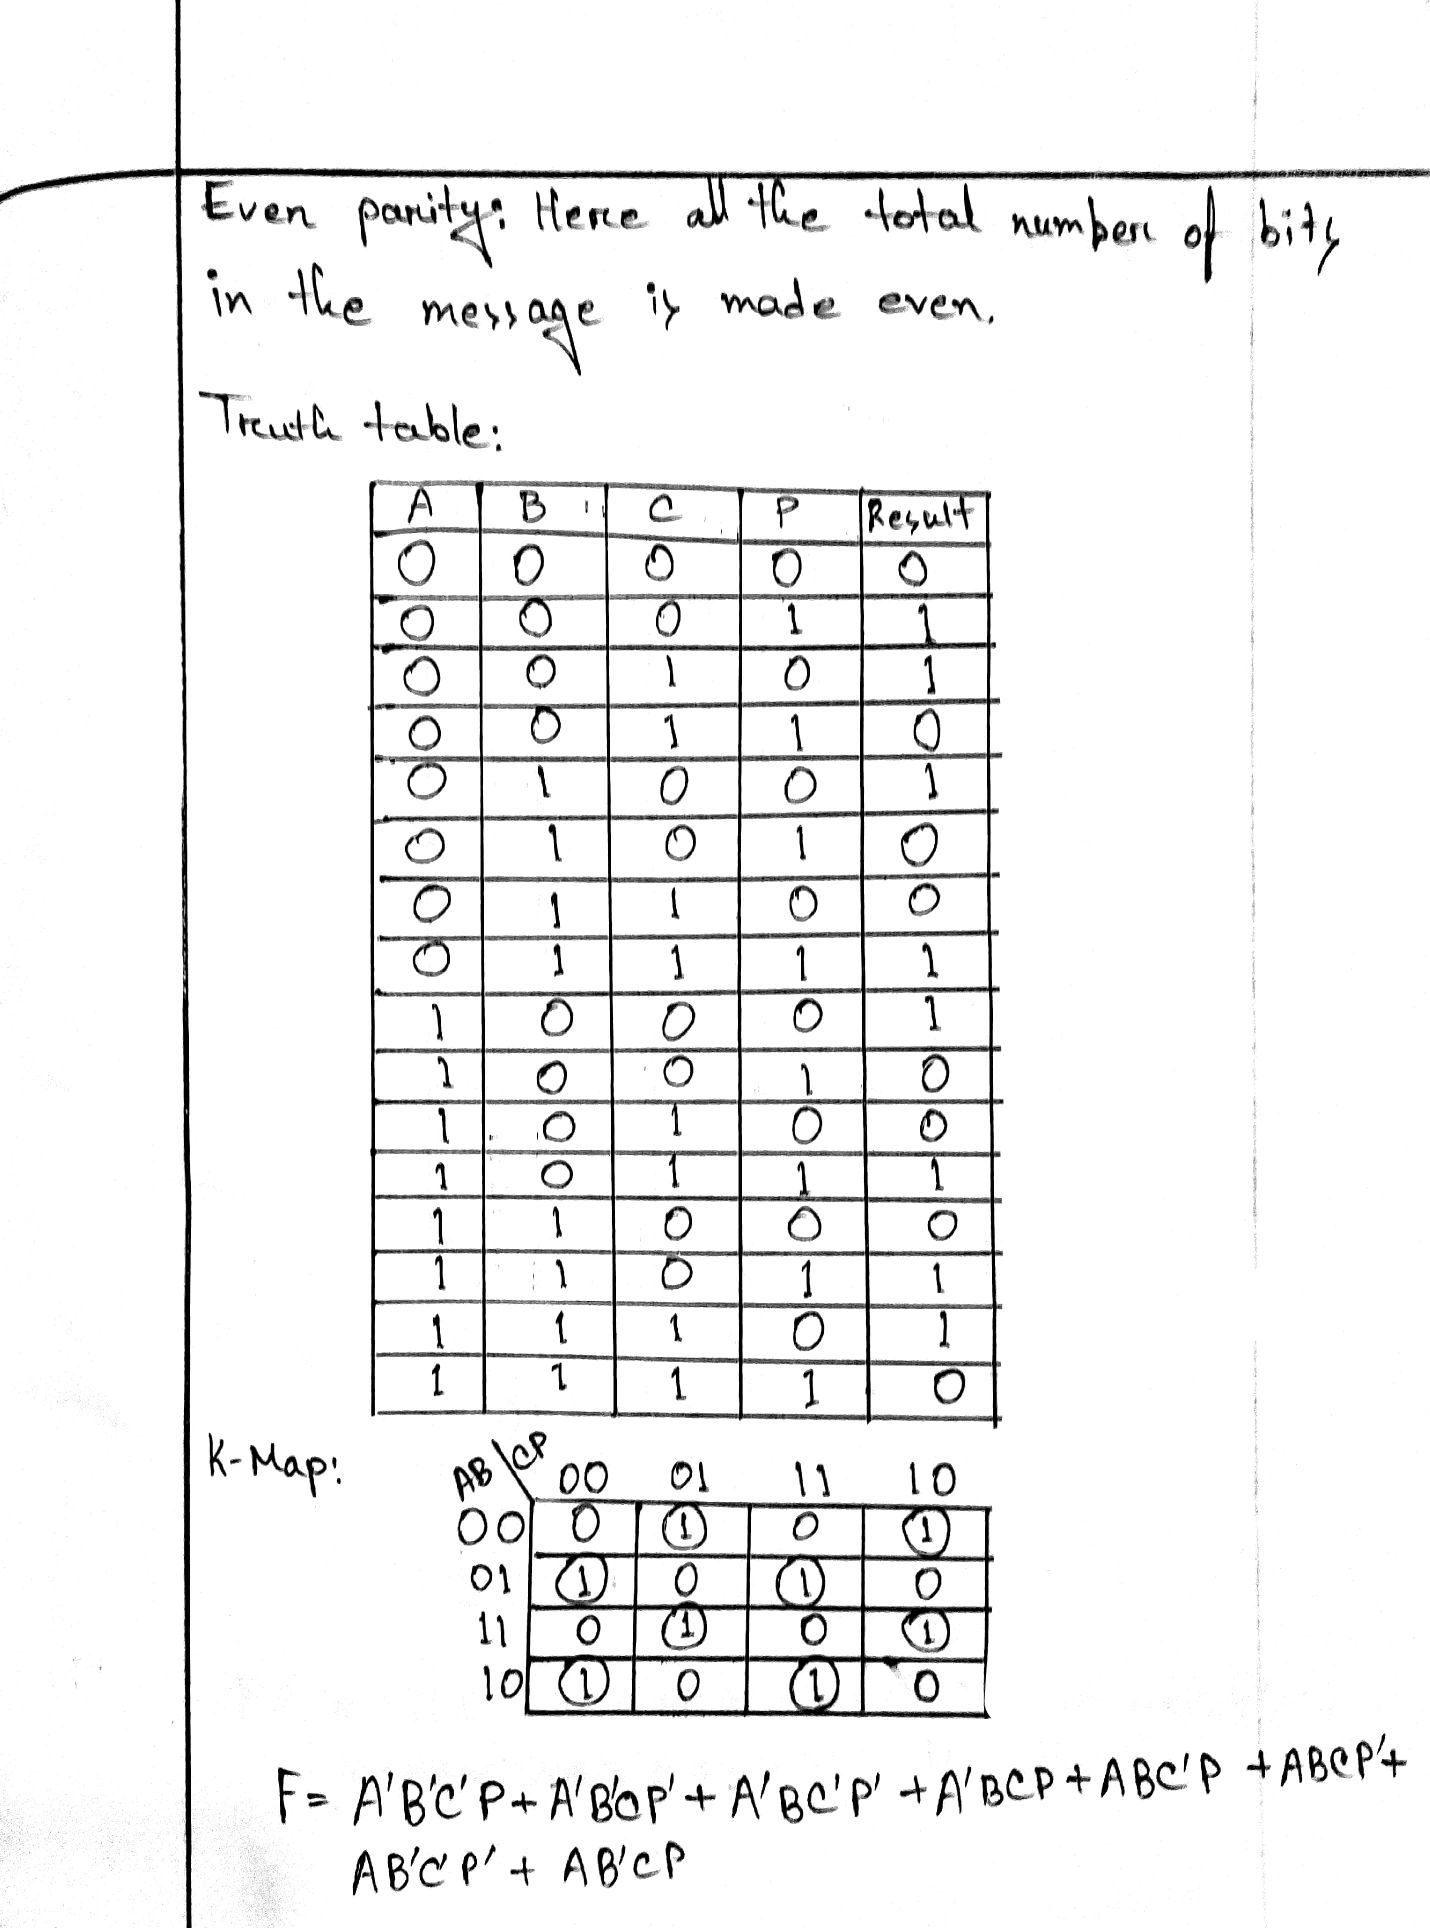 Even parity: Here all the total number of bits
in the message is made even.
Truth table:
A B C P Result
0 0 0 0 0
0 0 0 1 1
0 0 1 0 1
0 0 1 1 0
0 1 0 0 1
0 1 0 1 0
0 1 1 0 0
0 1 1 1 1
1 0 0 0 1
1 0 0 1 0
1 0 1 0 0
1 0 1 1 1
1 1 0 0 0
1 1 0 1 1
1 1 1 0 1
1 1 1 1 0
K-Map:
AB\CP 00 01 11 10
00 0 1 0 1
01 1 0 1 0
11 0 1 0 1
10 1 0 1 0
F= A'B'C'P+A'B'CP'+A'BC'P'+A'BCP+ABC'P+ABCP'+
AB'C'P'+AB'CP